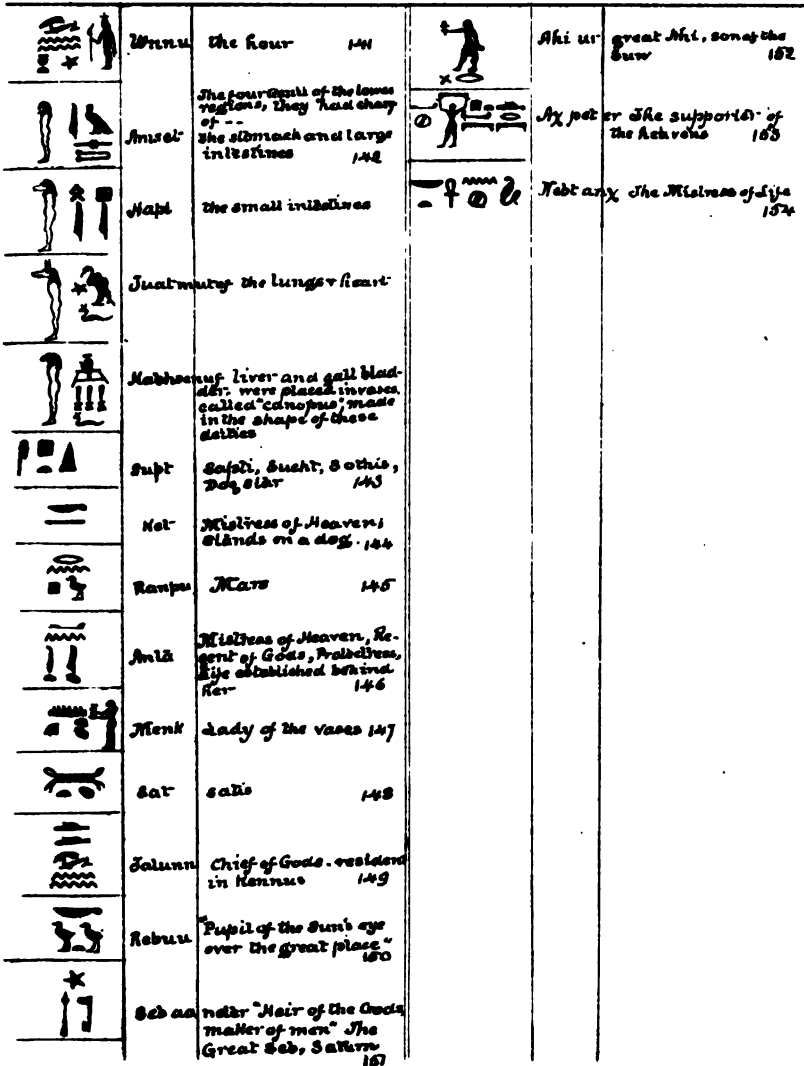 Unnu the hour 141
The four Genii of the lower
regions, they had charge
of --
Amset the stomach and large
intestines 142
Hapi the small intestines
Tuatmutef the lungs & heart
Kabhsenuf liver and gall blad-
der. were placed in vases
called "canopus", made
in the shape of these
deities
Supt Sapti, Sueht, Sothis,
Dog star 143
Ket Mistress of Heaven,
stands on a dog. 144
Ranpu Mars 145
Anta Mistress of Heaven, Re-
gent of Gods, Protectress,
Life established behind
her 146
Menk Lady of the vases 147
Sat Satis 148
Tatunn Chief of Gods. resident
in Kennus 149
Rebuu "Pupil of the Sun's eye
over the great place"
150
Seb aa neter "Heir of the Gods,
matter of men" The
Great Seb, Saturn
151
Ahi ur great Ahi, son of the
Sun 152
Ax pet er The supporter of
the heavens 153
Nebt anχ The Mistress of Life
154